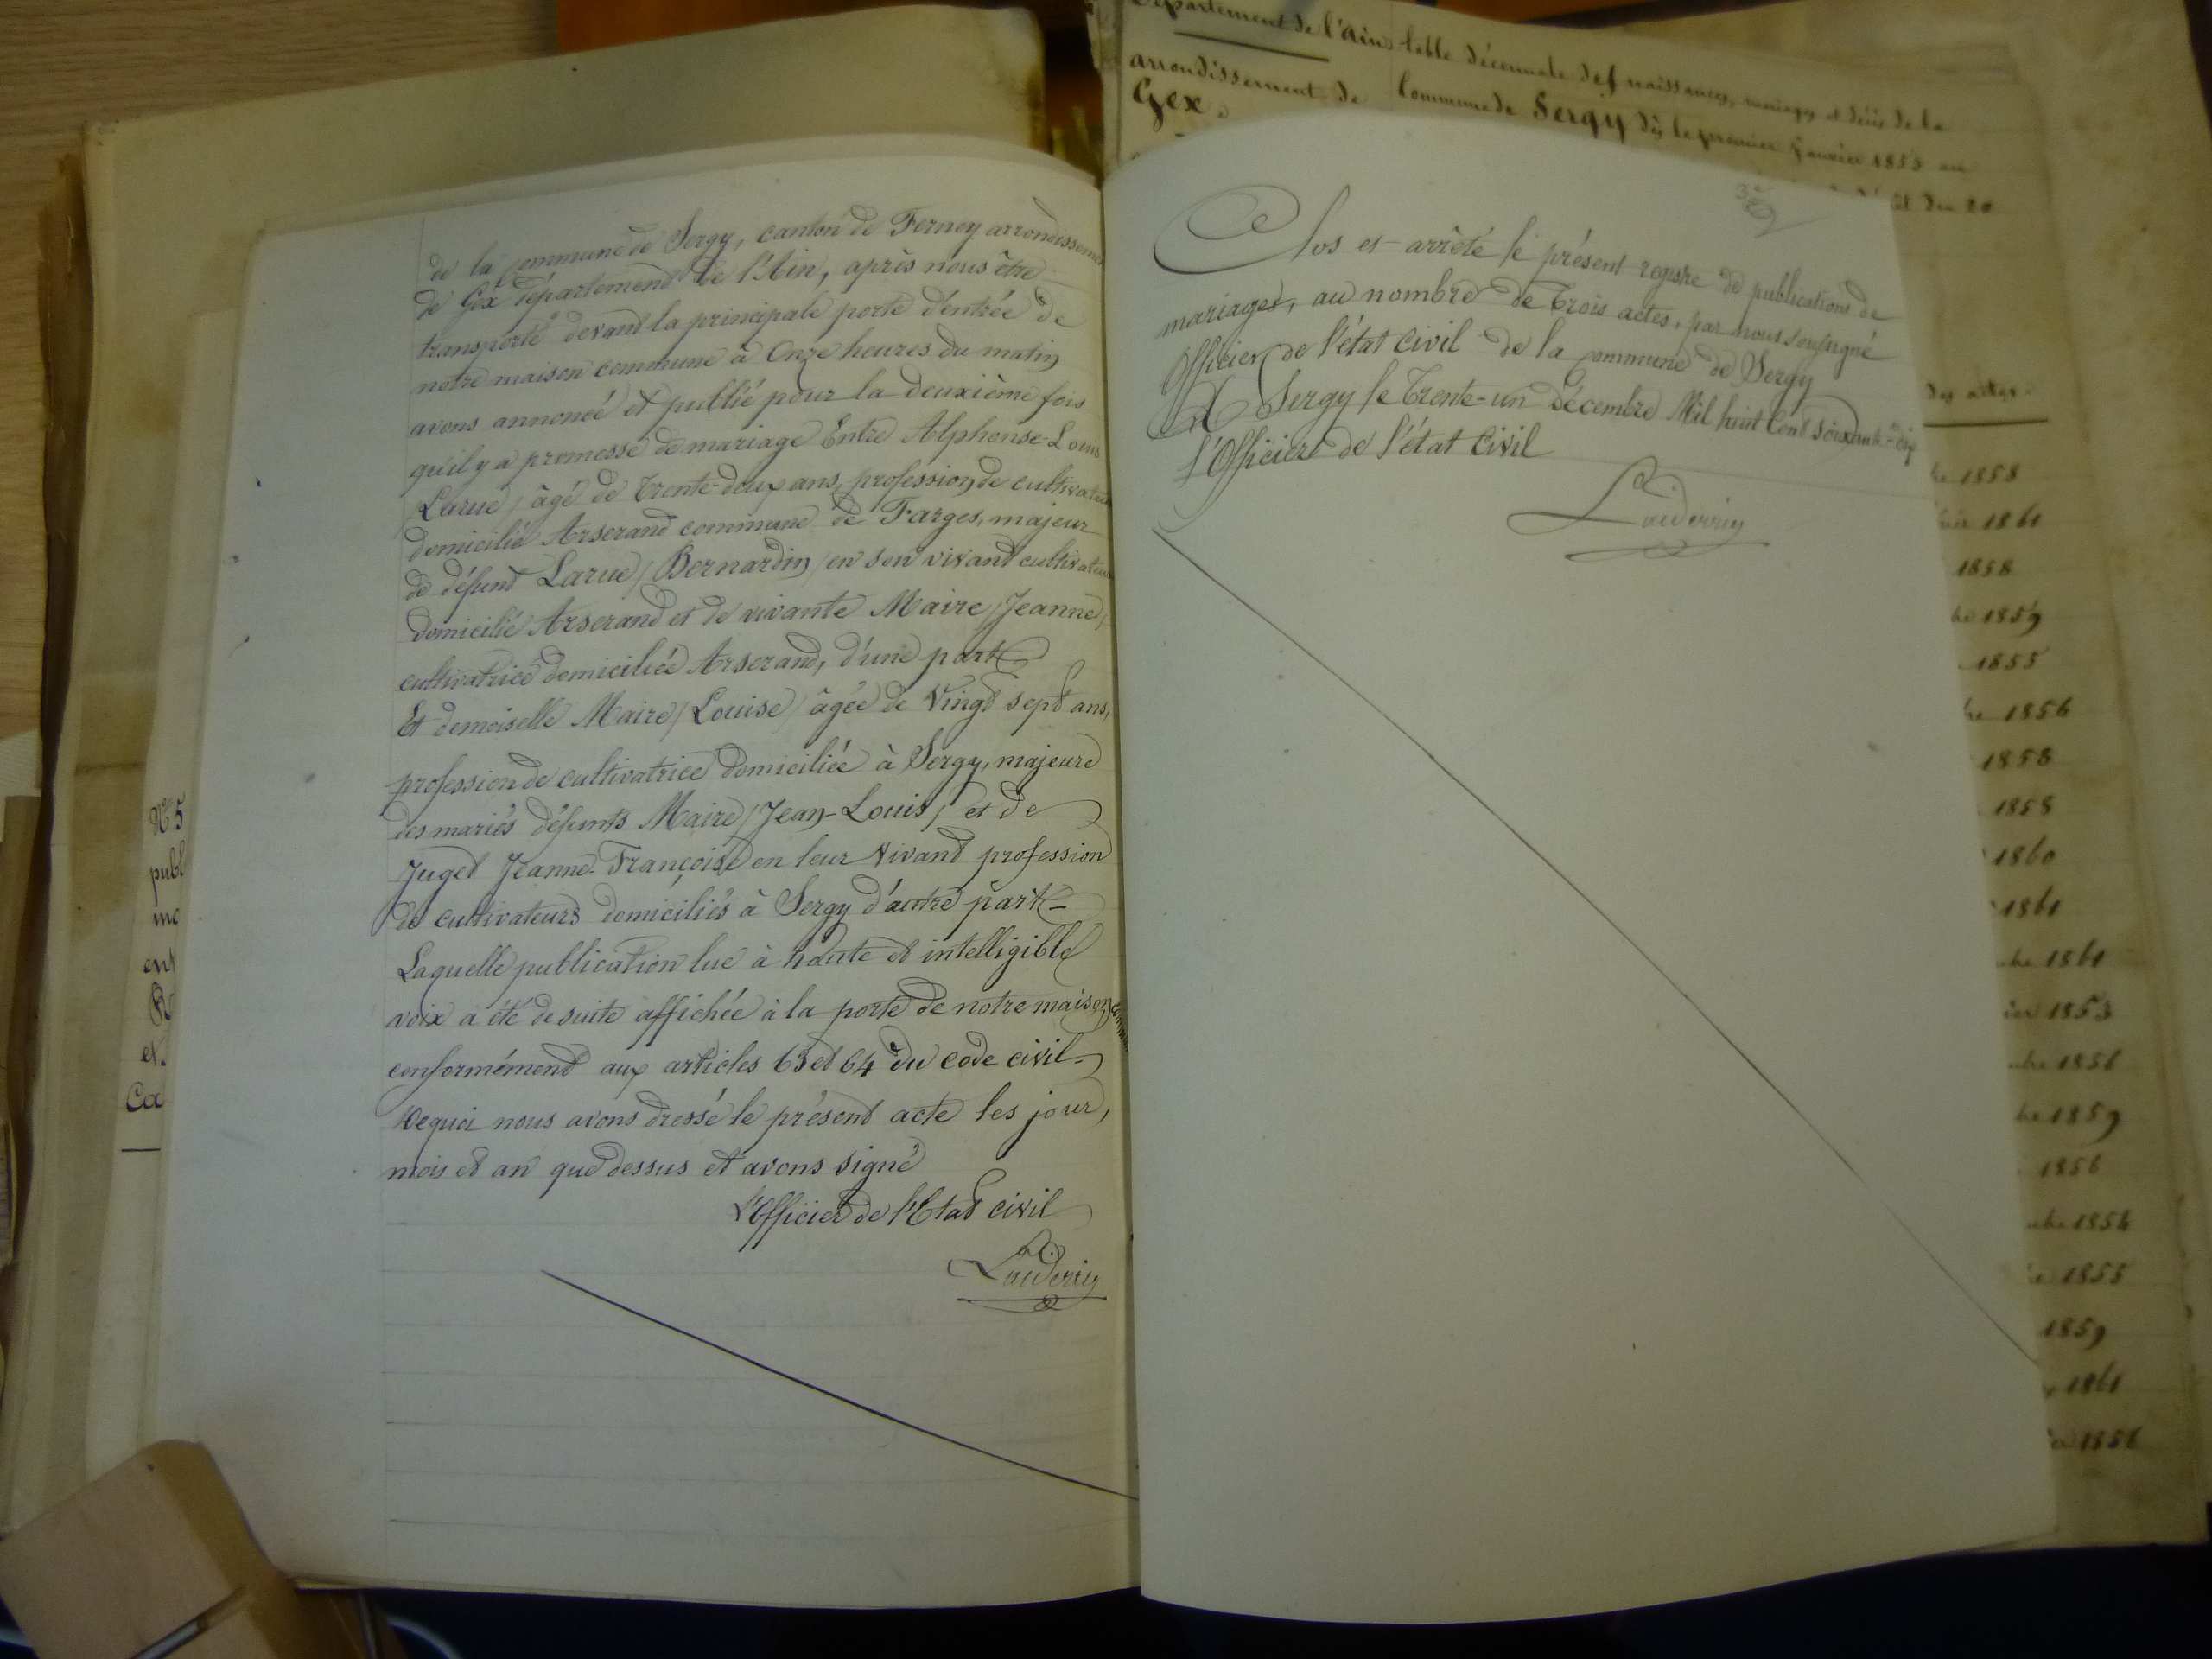 de la Commune de Sergy, canton de Ferney arrondissement
de Gex Département de l'Ain, après nous être
transporté devant la principale porte d'entrée de
notre maison commune à Onze heures du matin
avons annoncé et publié pour la deuxième fois
qu'il y a promesse de mariage Entre Alphonse-Louis
Larue, âgé de Trente-deux ans, profession de cultivateur
domicilié Arserand commune de Farges, majeur
de défunt Larue / Bernardin / en son vivant cultivateur
domicilié Arserand et de vivante Maire / Jeanne /
cultivatrice domiciliée Arserand, d'une part
Et demoiselle Maire / Louise / âgée de Vingt sept ans,
profession de cultivatrice domiciliée à Sergy, majeure
des mariés défunts Maire / Jean-Louis / et de
Juget Jeanne-Françoise en leur vivant profession
de cultivateurs domiciliés à Sergy d'autre part
Laquelle publication lue à haute et intelligible
voix a été de suite affichée à la porte de notre maison commune
conformément aux articles 63 et 64 du code civil
De quoi nous avons dressé le présent acte les jour,
mois et an que dessus et avons signé
L'Officier de l'Etat civil
Clos et arrêté le présent registre de publications de
mariages, au nombre de Trois actes, par nous soussigné
Officier de l'état Civil de la Commune de Sergy
A Sergy le Trente-un décembre Mil huit Cent soixante-dix
L'Officier de l'état Civil
Département de l'Ain
arrondissement de
Gex.
table décennale des naissances, mariages et décès de la
Commune de Sergy dès le premier Janvier 1853 au
des actes
1858
1861
1858
1859
1855
1856
1858
1858
1860
1861
1861
1853
1856
1859
1856
1854
1855
1859
1861
1856
N° 5
publ
ent
et